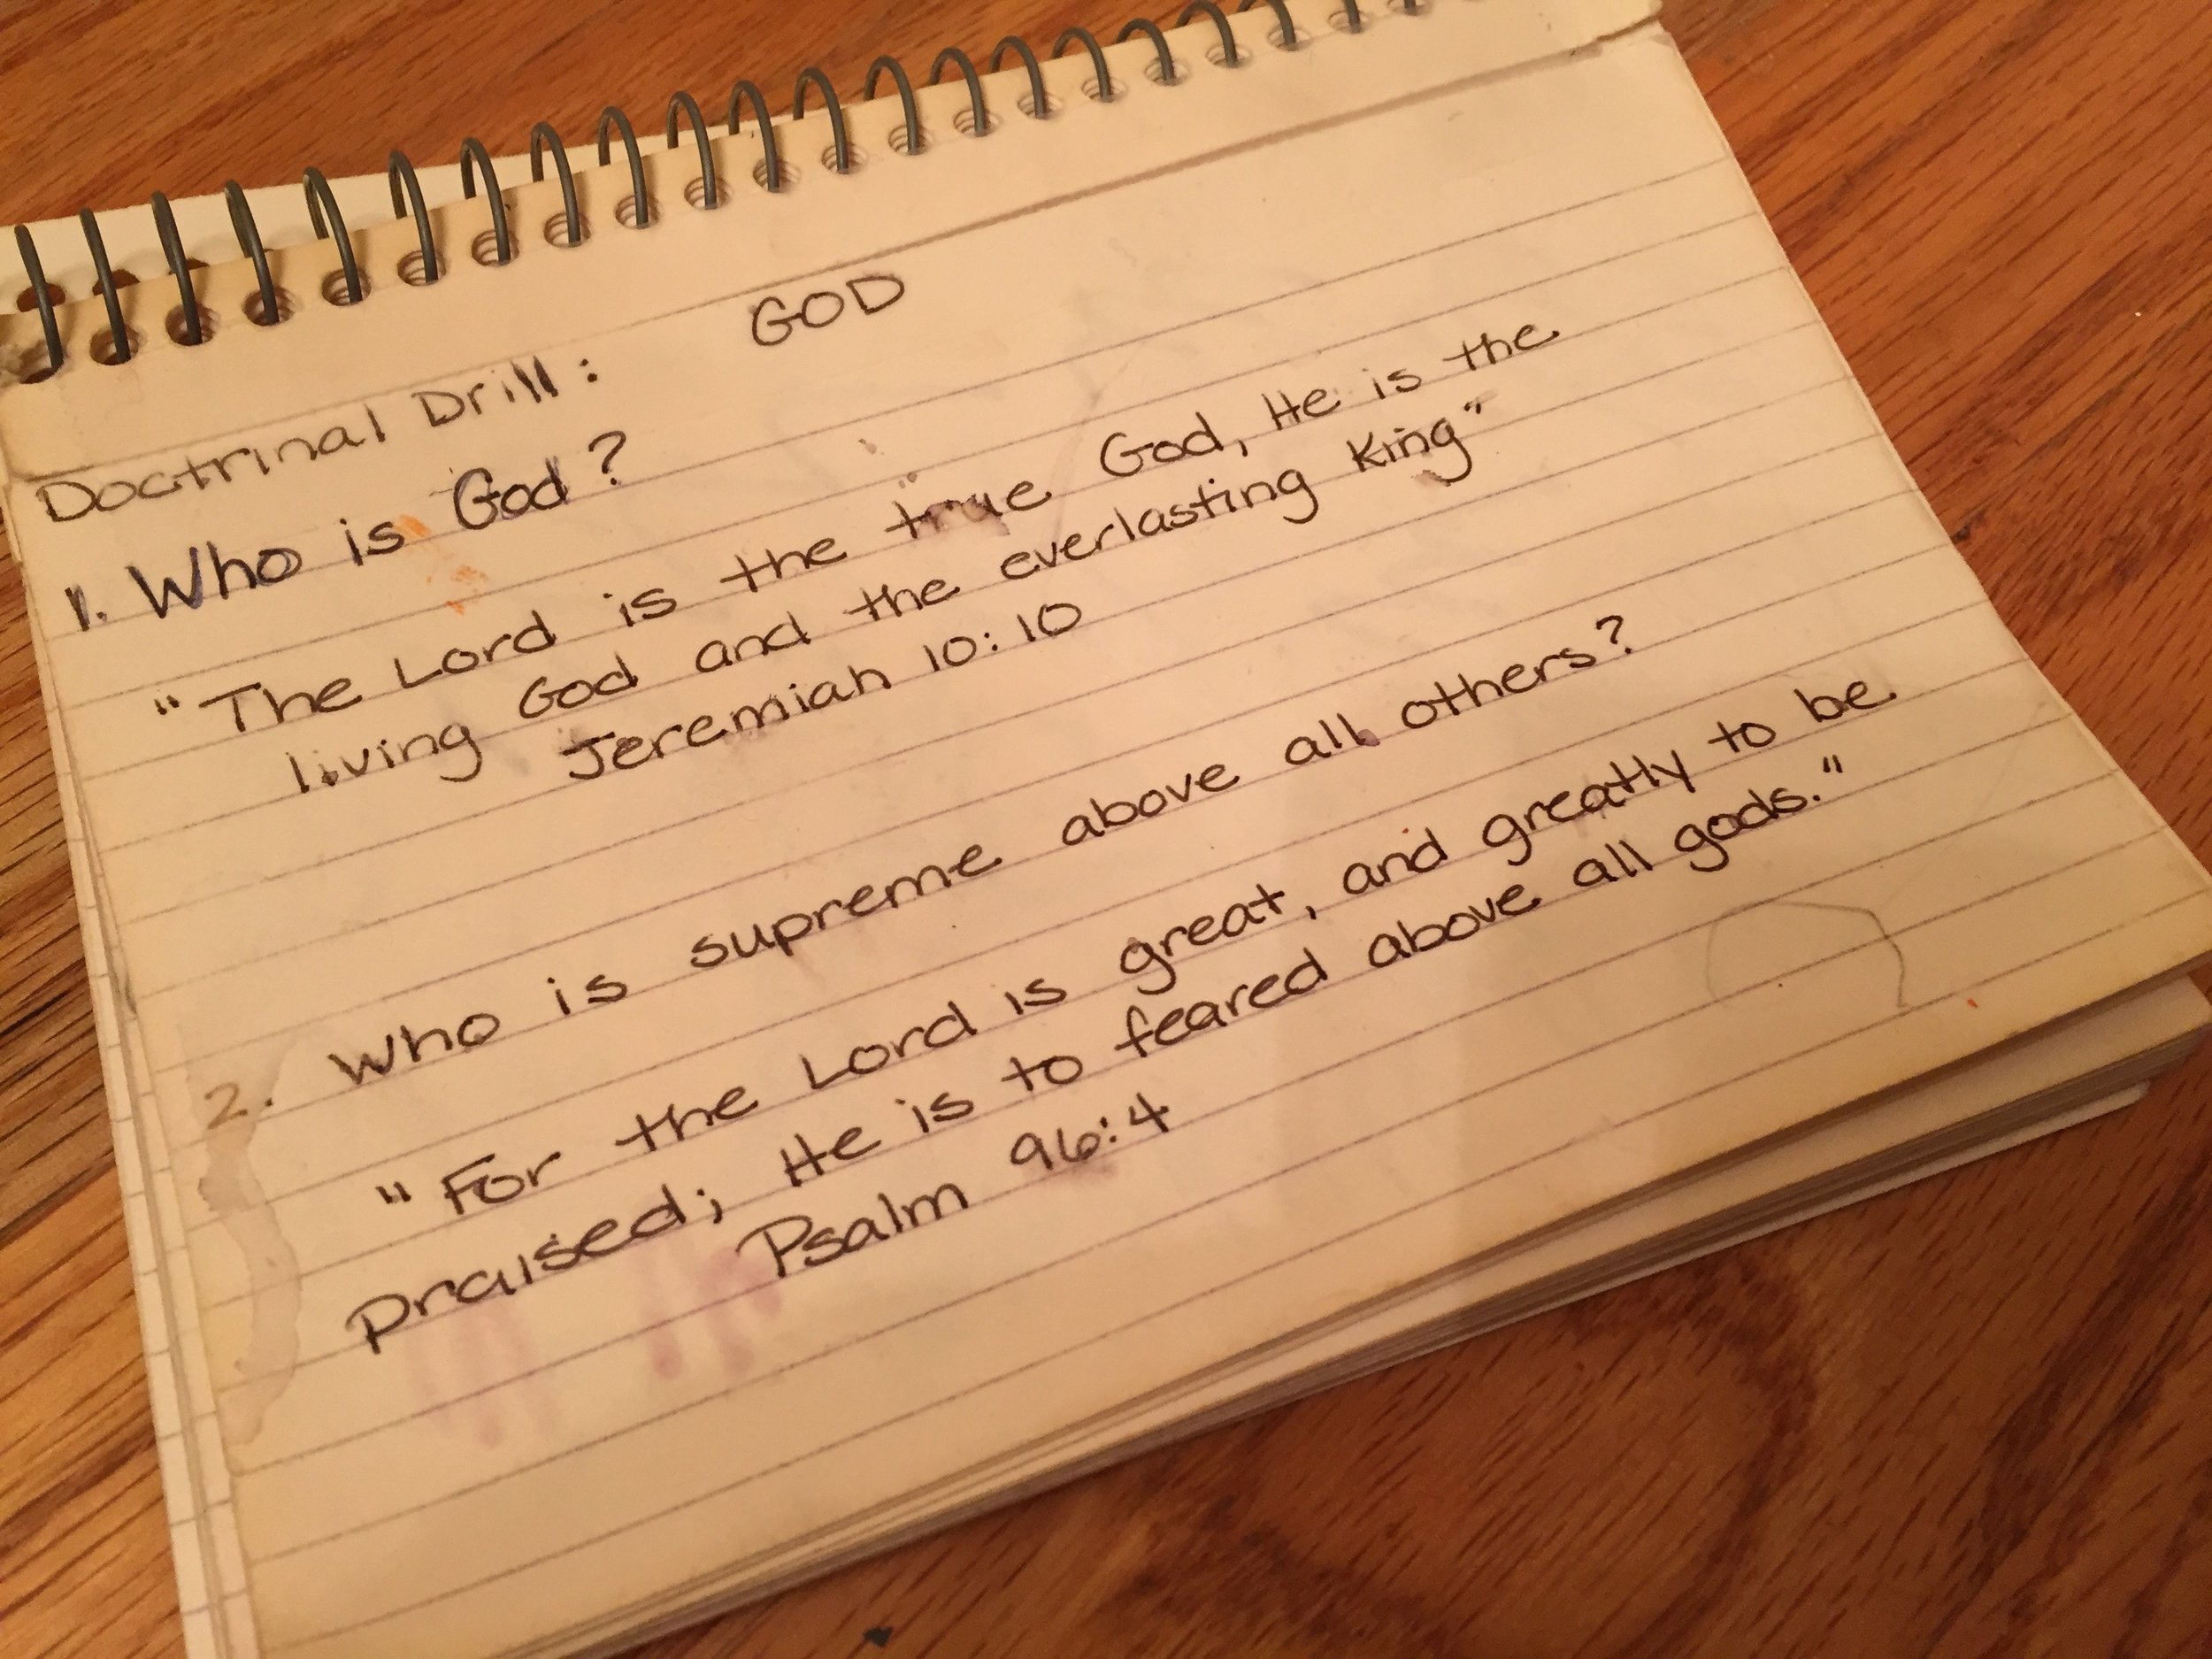 GOD
Doctrinal Drill:
1. Who is God?
"The Lord is the true God, He is the
living God and the everlasting King"
Jeremiah 10:10
2. Who is supreme above all others?
"For the Lord is great, and greatly to be
praised; He is to feared above all gods."
Psalm 96:4